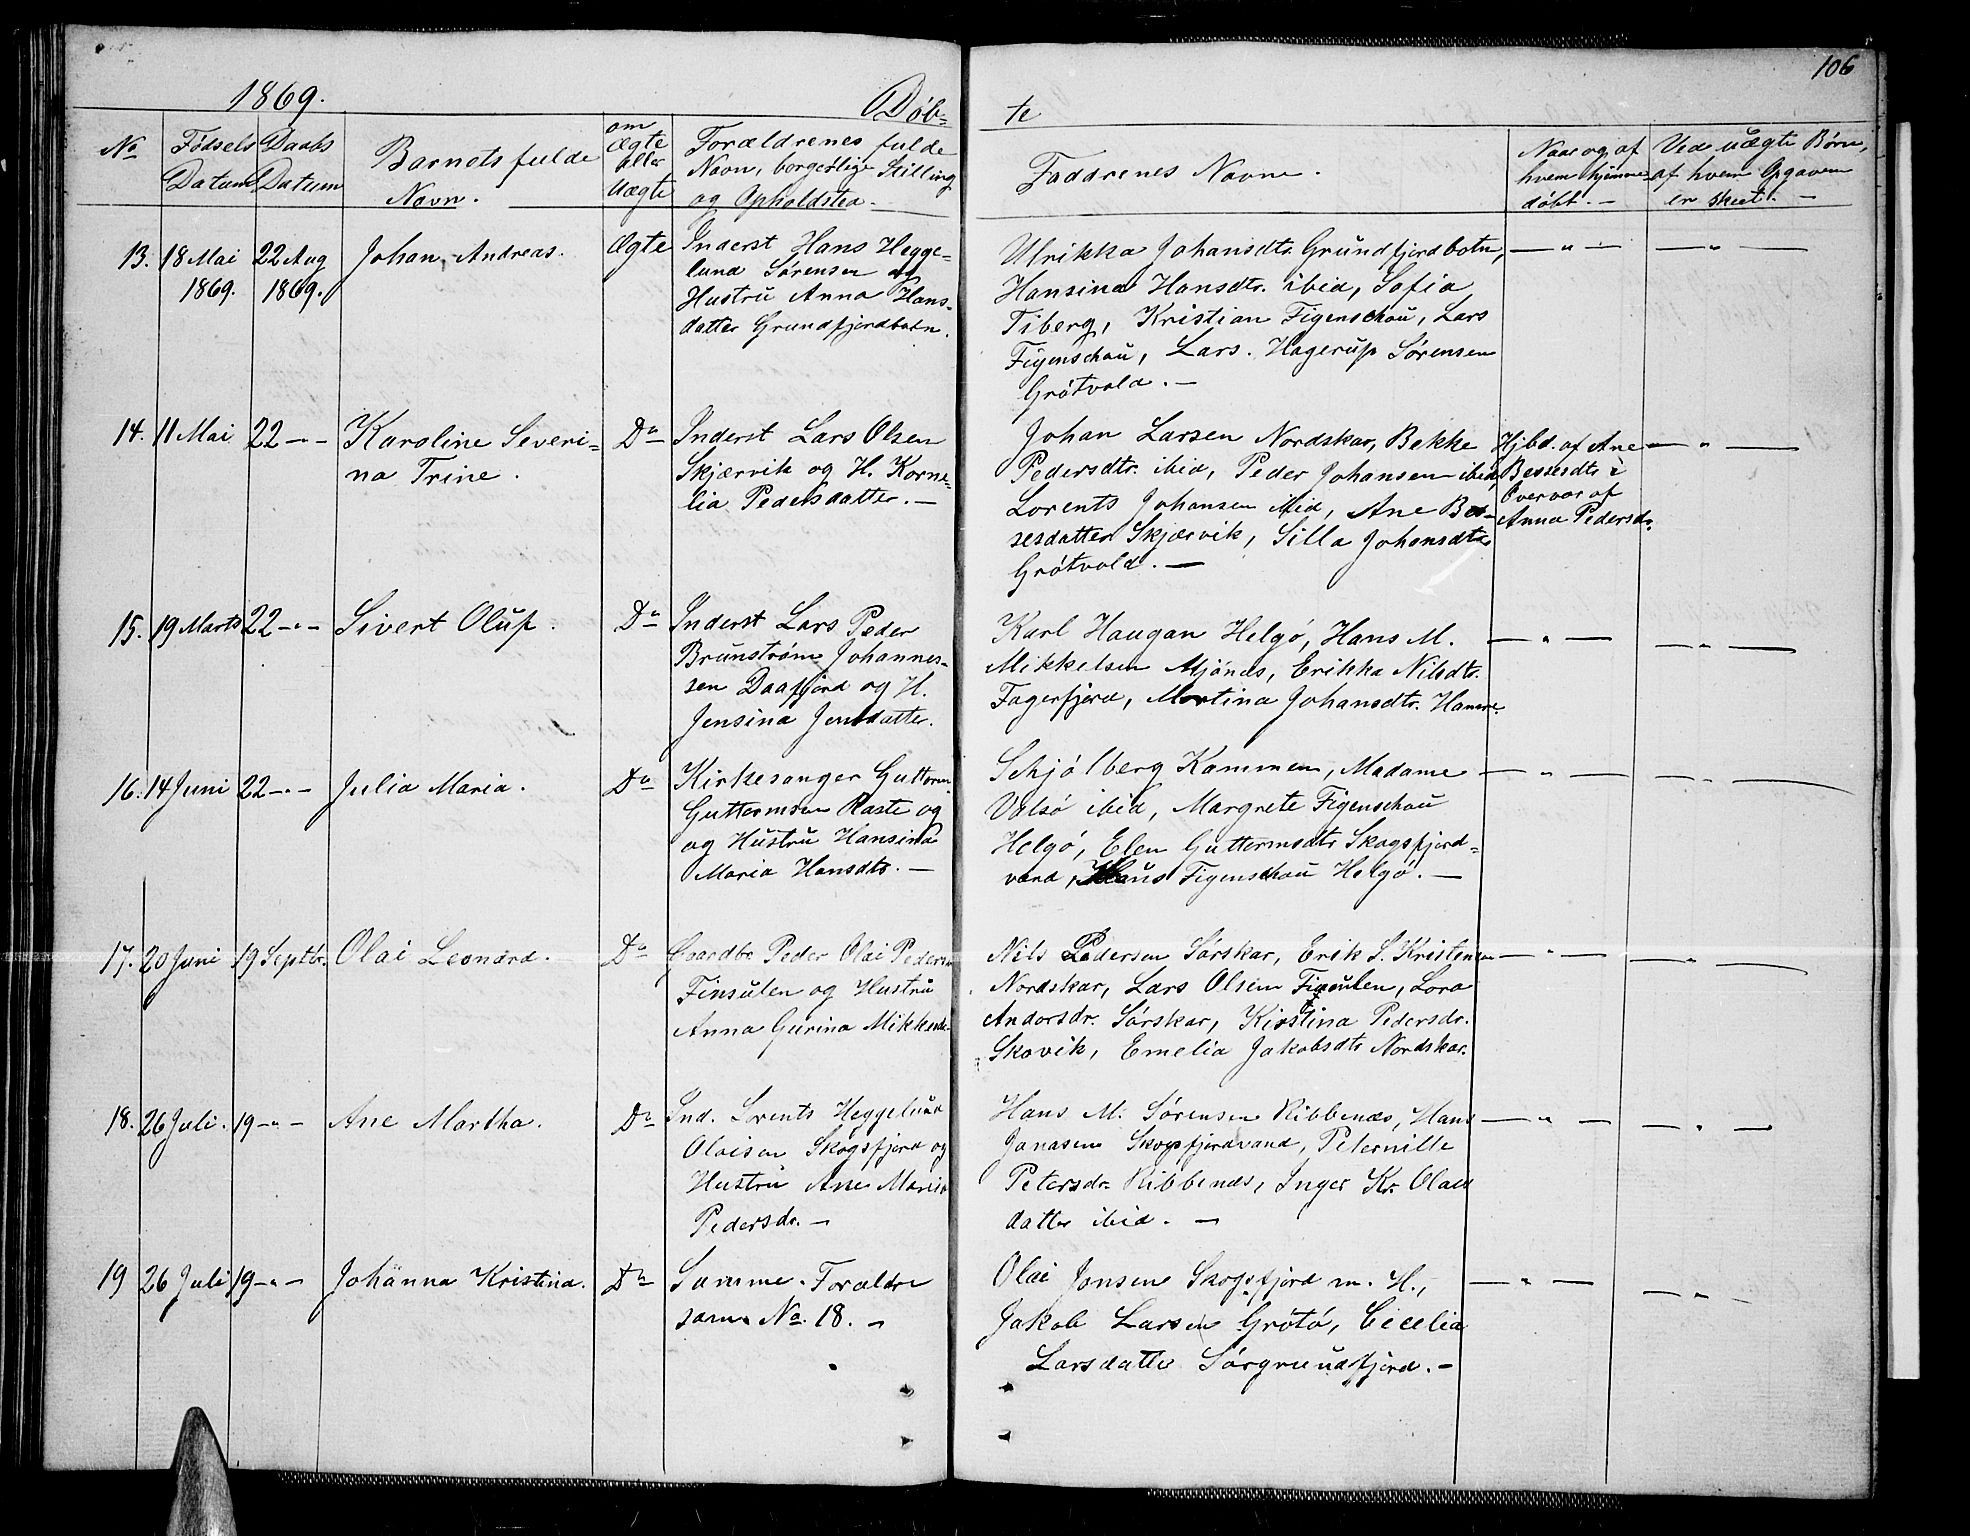 106
1869.
Døb-
te
No
Fødsels Datum
Daabs Datum
Barnets fulde Navn.
om Ægte eller Uægte
Forældrenes fulde Navn, borgerlige Stilling og Opholdsted.
Faddrenes Navne.
Naar og af hvem hjemmedøbt. —
Ved uægte Børn, af hvem Opgaven er skeet. —
13. 18 Mai 1869. 22 Aug 1869. Johan Andreas. Ægte
Inderst Hans Hegge-
lund Sørensen og
Hustru Anna Hans-
datter Grundfjordbotn.
Ulrikka Johansdtr. Grundfjordbotn,
Hansina Hansdtr. ibid, Sofia
Tiberg, Kristian Figenschou, Lars
Figenschou, Lars. Hagerup Sørensen
Grötvold. —
— " —
— " —
14. 11 Mai 22 — " — Karoline Severi-
na Trine. Do
Inderst Lars Olsen
Skjærvik og H. Korne-
lia Pedersdatter. —
Johan Larsen Nordskar, Bekke
Pedersdtr. ibid, Peder Johansen ibid,
Lorents Johansen ibid, Ane Bes-
sesdatter Skjærvik, Silla Johansdtr
Grötvold. —
Hjbd. af Ane
Bessesdtr i
Overvær af
Anna Pedersdr.
— " —
15. 19 Marts 22 — " — Sivert Olüf. Do
Inderst Lars Peder
Brunström Johannes-
sen Daafjord og H.
Jensina Jensdatter.
Karl Haugan Helgö, Hans M.
Mikkelsen Mjönes, Erikka Nilsdtr.
Fagerfjord, Martina Johansdtr. Hamre.
— " —
— " —
16. 14 Juni 22 — " — Julia Maria. Do
Kirkesanger Guttorm
Guttormsen Raste og
og Hustru Hansina
Maria Hansdtr. —
Schjölberg Kammen, Madame
Valsö ibid, Margrete Figenschou
Helgö, Elen Guttormsdtr Skogsfjord-
vand, Klaus Figenschou Helgö. —
— " —
— " —
17. 20 Juni 19 Septbr. Olai Leonard. Do
Gaardbr Peder Olai Pedersen
Finsulen og Hustru
Anna Gurina Mikkelsdr
Nils Pedersen Sörskar, Erik S. Kristensen
Nordskar, Lars Olsen Finsulen, Lora
Andorsdr. Sörskar, Kirstina Pedersdr.
Skovik, Emelia Jakobsdtr Nordskar.
— " —
— " —
18. 26 Juli. 19 — " — Ane Martha. Do
Ind. Lorents Heggelund
Olaisen Skogsfjord og
Hustru Ane Maria
Pedersdr. —
Hans M. Sörensen Ribbenæs, Hans
Janasen Skogsfjordvand, Peternille
Petersdr. Ribbenæs, Inger Kr. Olai
datter ibid. —
— " —
— " —
19 26 Juli 19 — " — Johanna Kristina. Do
Samme Forældre
som No. 18. —
Olai Jonsen Skogsfjord m. H.,
Jakob Larsen Grötö, Cecelia
Larsdatter Sörgrundfjord. —
— " —
— " —